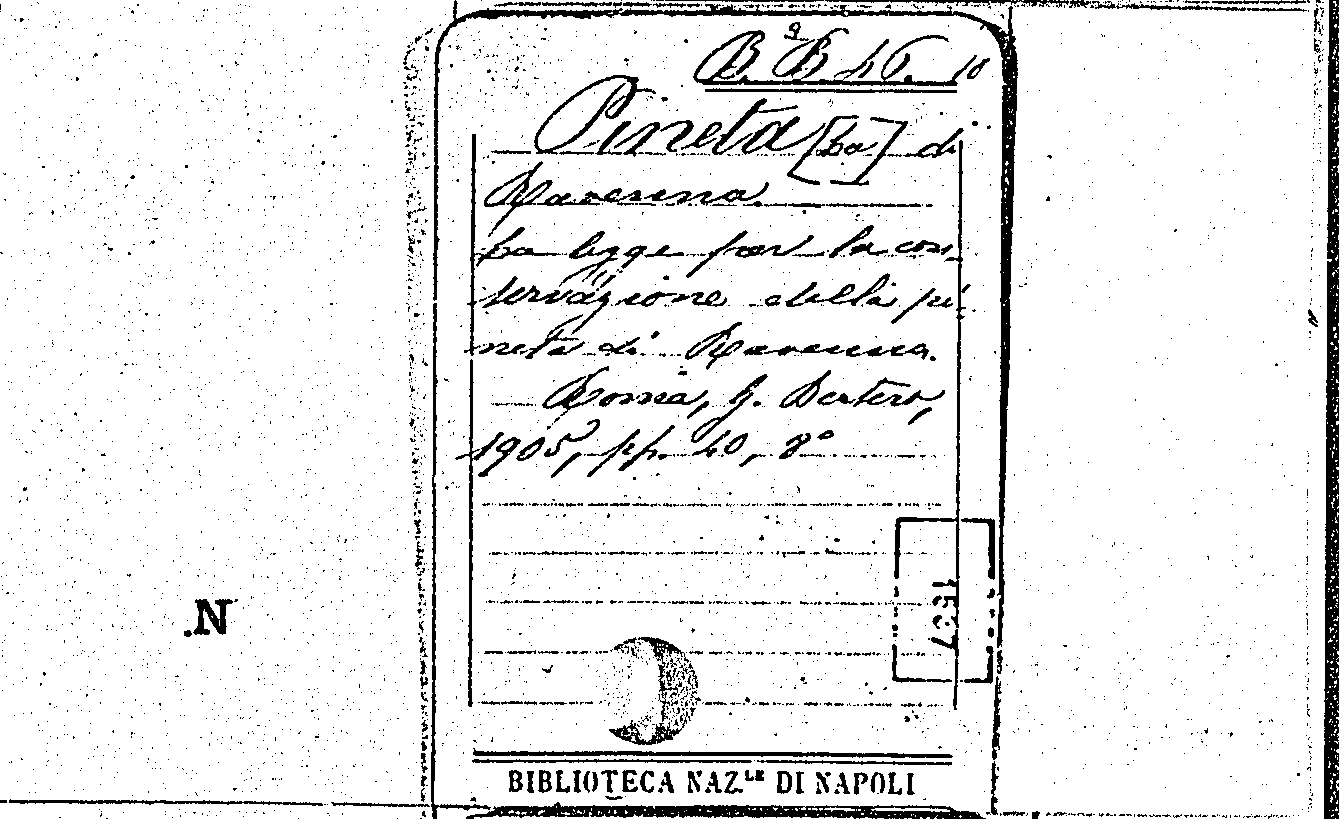 B. B 46. 10
Pineta [La] di
Ravenna.
La legge per la con-
servazione della pi-
neta di Ravenna.
Roma, G. Bertero,
1905, pp. 40, 8°
1537
.N
BIBLIOTECA NAZ.LE DI NAPOLI